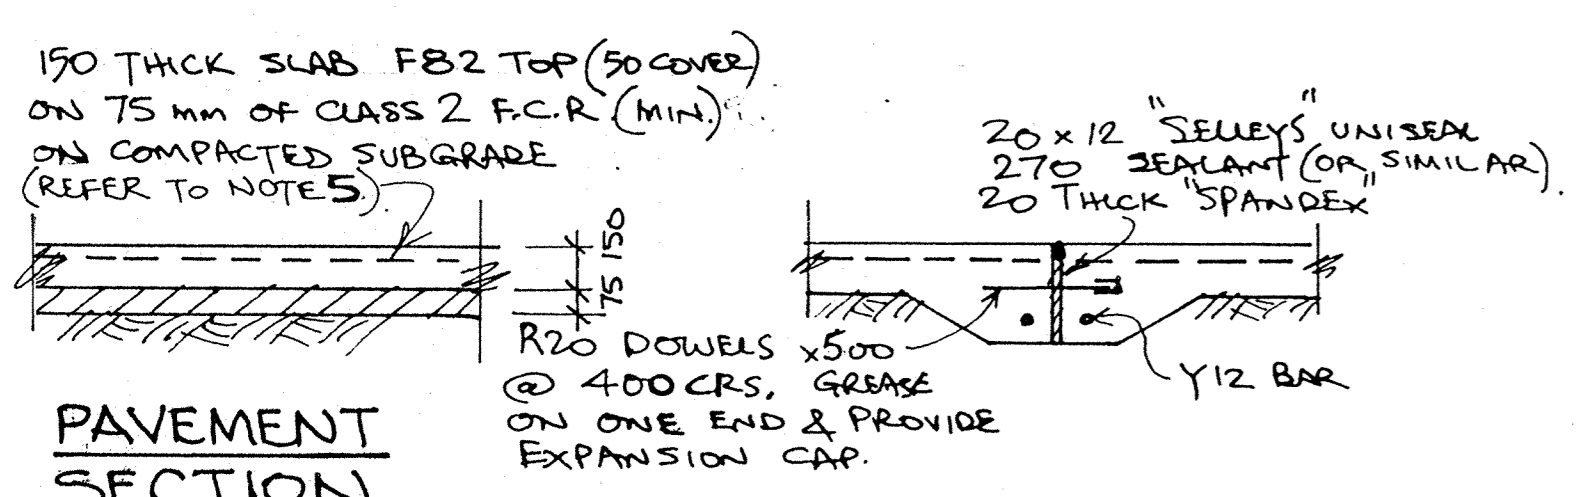 150 THICK SLAB F82 TOP (50 COVER)
ON 75 mm OF CLASS 2 F.C.R. (MIN.)
ON COMPACTED SUBGRADE
(REFER TO NOTE 5.)
150
75
20 x 12 "SELLEYS" UNISEAL
270 SEALANT (OR SIMILAR).
20 THICK "SPANDEX"
R20 DOWELS x500
@ 400 CRS. GREASE
ON ONE END & PROVIDE
EXPANSION CAP.
Y12 BAR
PAVEMENT
SECTION